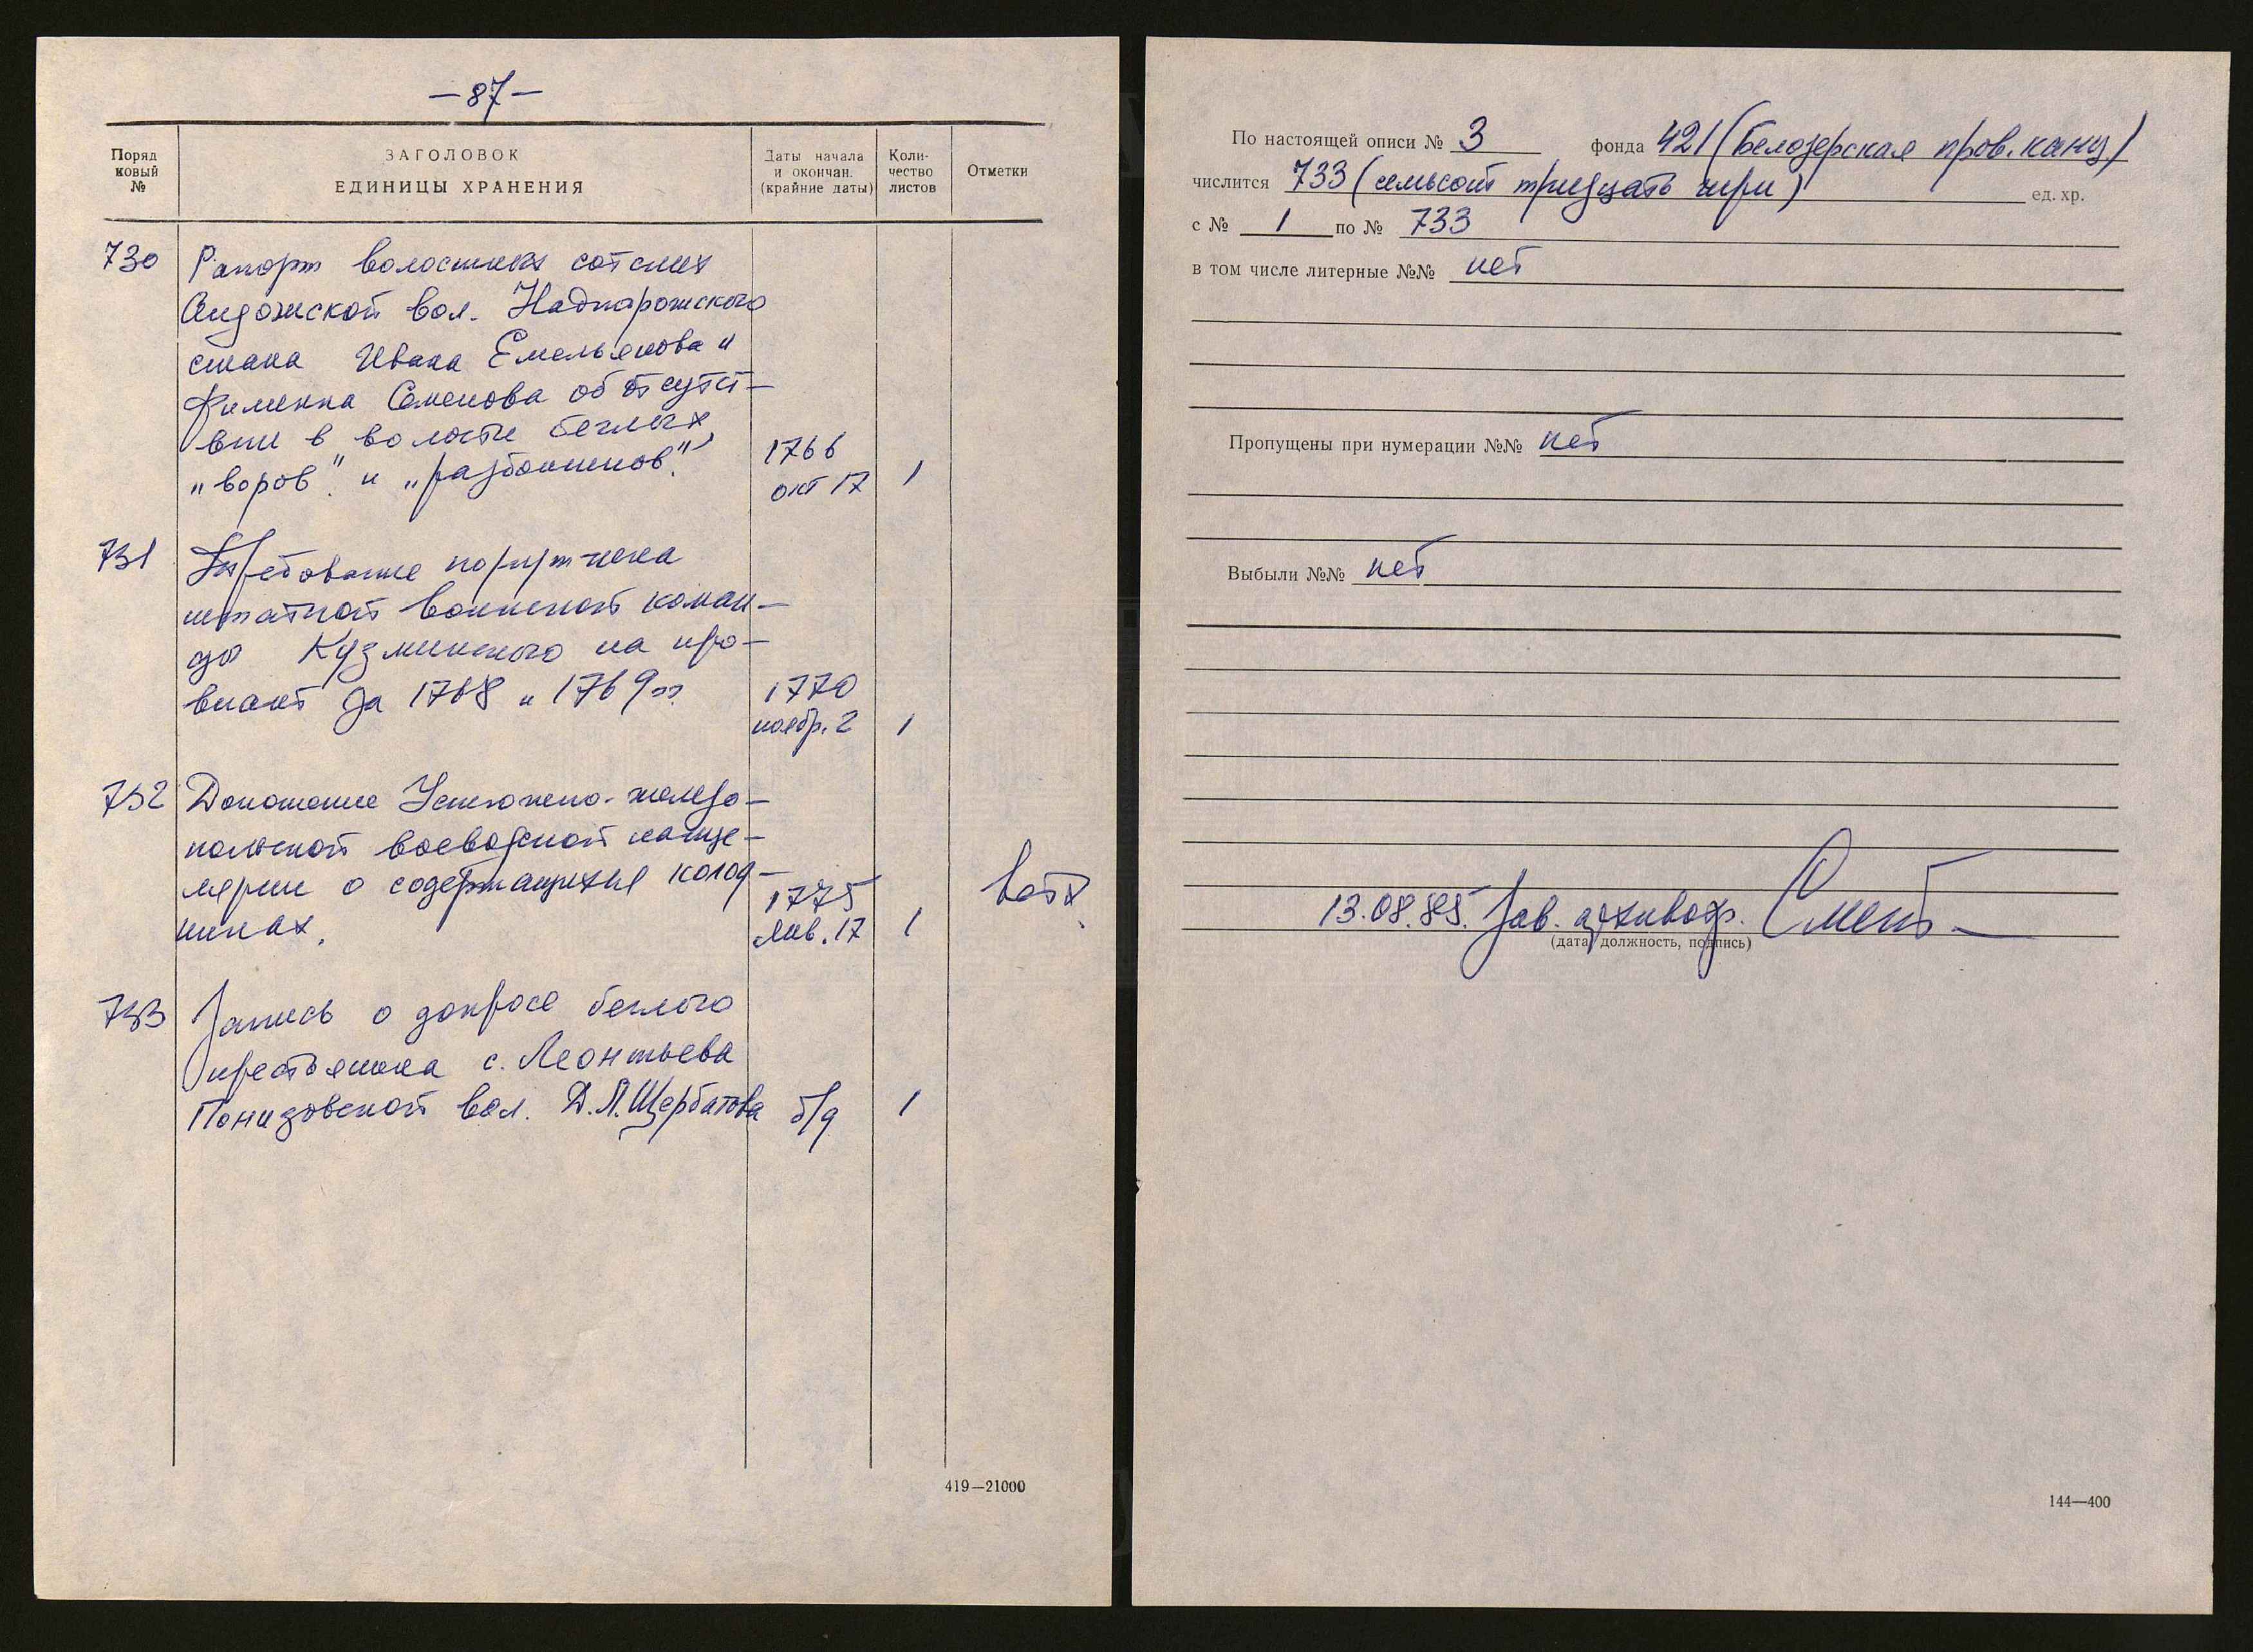 —87—
Поряд
ковый
№
ЗАГОЛОВОК
ЕДИНИЦЫ ХРАНЕНИЯ
Даты начала
и окончан.
(крайние даты)
Коли-
чество
листов
Отметки
730
Рапорт волостных сотских
Андожской вол. Надпорожского
стана Ивана Емельянова и
Семенова об отсутст-
вии в волости беглых
„воров" и „разбойников".
1766
окт 17
1
731
Требование порутчика
штатной воинской коман-
ды Кузминского на про-
виант за 1768 и 1769 гг.
1770
ноябр. 2
1
732
Доношение Устюжено-железо-
польской воеводской канце-
лярии о содержащихся колод-
никах.
1775
янв. 17
1
ветх
733
Запись о допросе беглого
крестьянина с. Леонтьева
Понизовской вол. Д.Л. Щербатова
б/д
1
419—21000
По настоящей описи № 3 фонда 421 (Белозерская пров. канц)
числится 733 (семьсот тридцать три) ед. хр.
с № 1 по № 733
в том числе литерные №№ нет
Пропущены при нумерации №№ нет
Выбыли №№ нет
13.08.85. Зав. архивохр.
(дата, должность, подпись)
144—400